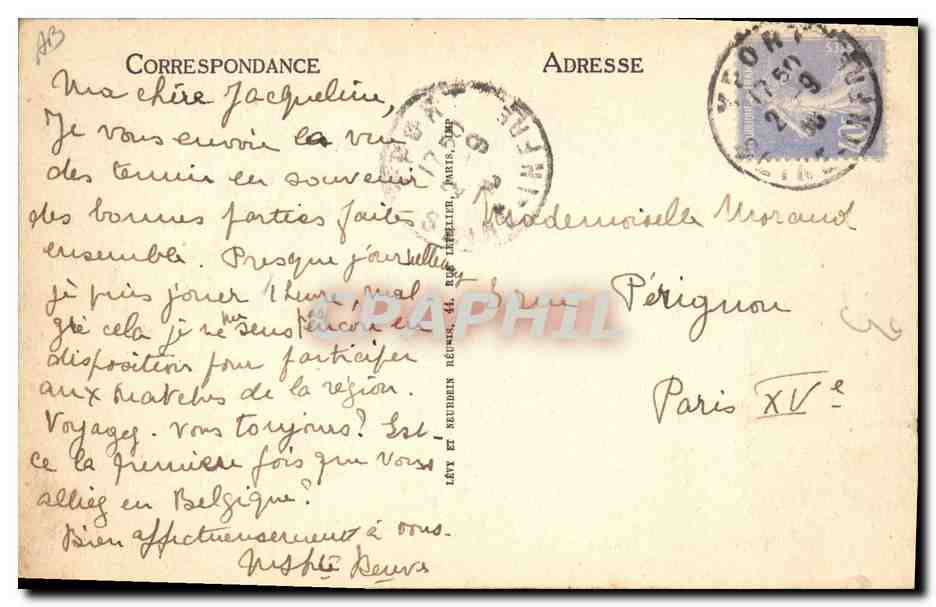 AB
CORRESPONDANCE
Ma chère Jacqueline,
Je vous envoie la vue
des tennis en souvenir
des bonnes parties faites
ensemble. Presque journellement
je puis jouer 1 heure, mal
gré cela je ne me sens pas encore en
disposition pour participer
aux matches de la région.
Voyagez-vous toujours? Est-
ce la première fois que vous
alliez en Belgique?
Bien affectueusement à vous.
LÉVY ET NEURDEIN RÉUNIS, 44, RUE LETELLIER, PARIS, IMP
ADRESSE
Mademoiselle Moraud
5 rue Pérignon
Paris XVe
CPAPHIL
17 50
17 50
40
3